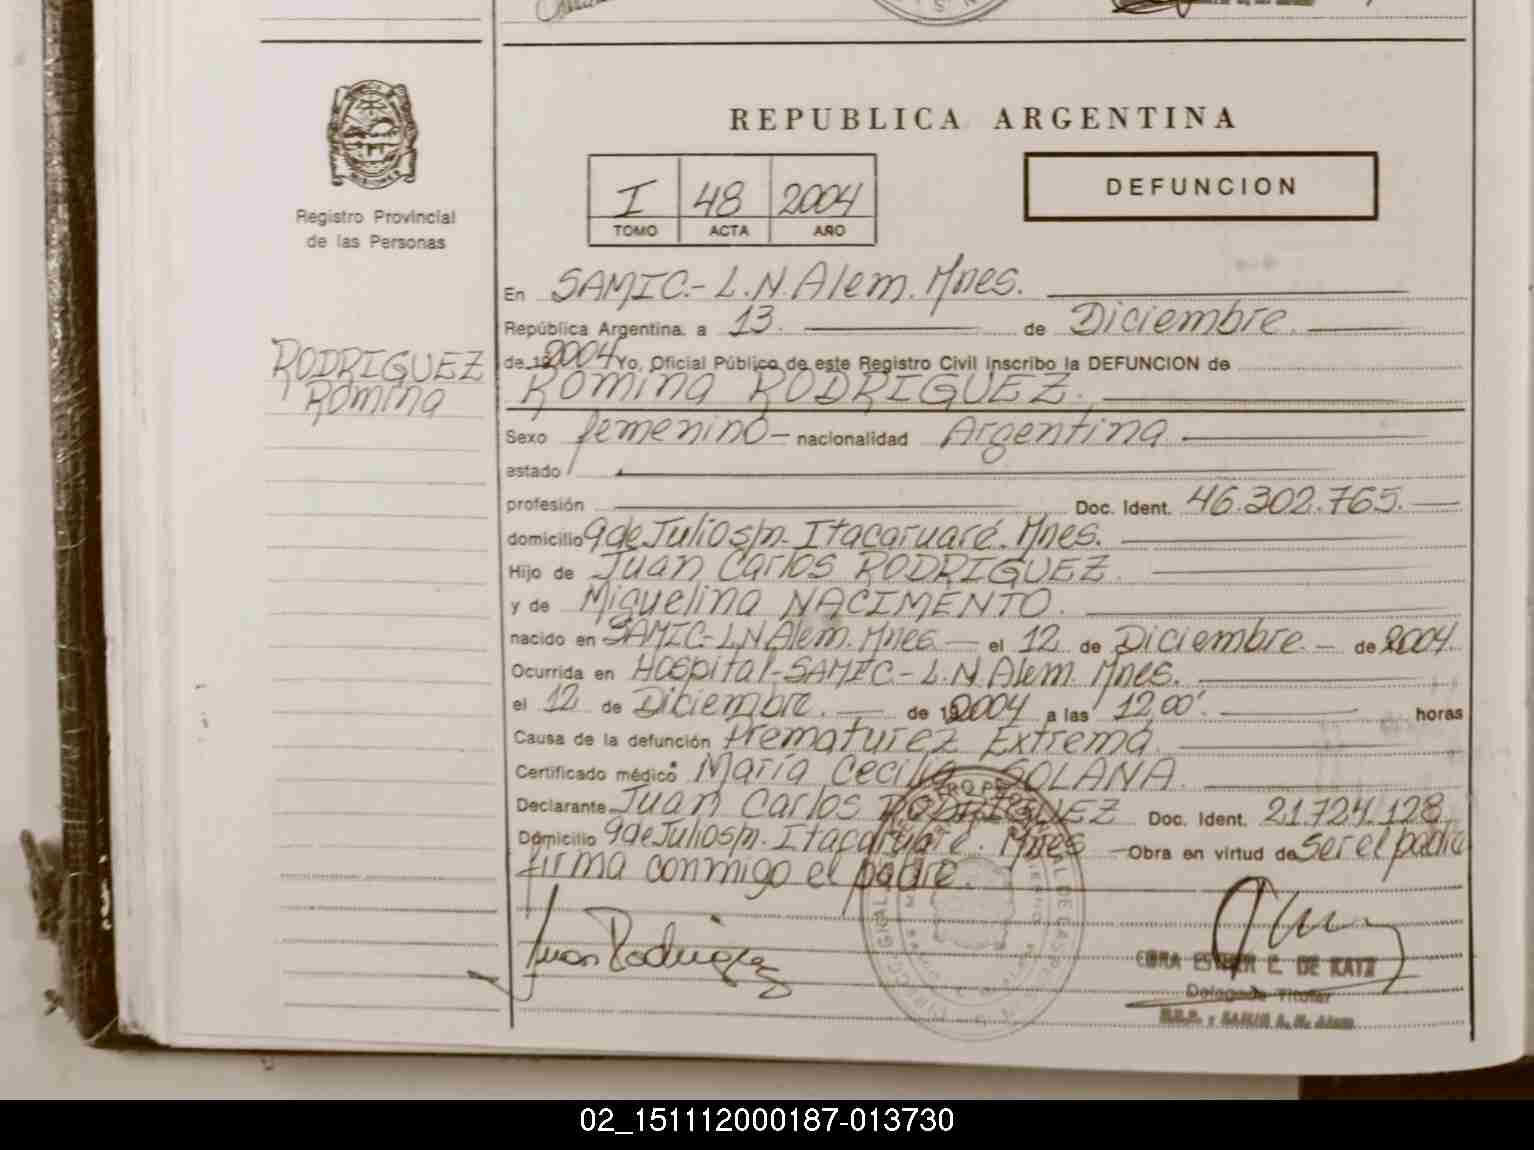 REPUBLICA ARGENTINA
DEFUNCION
I 48 2004
TOMO ACTA AÑO
Registro Provincial
de las Personas
RODRIGUEZ
Romina
En SAMIC.- L.N. Alem. Mnes.
República Argentina a 13. de Diciembre.
de 2004 Yo, Oficial Público de este Registro Civil inscribo la DEFUNCION de
Romina RODRIGUEZ.
Sexo femenino- nacionalidad Argentina
estado
profesión Doc. Ident. 46.302.765.
domicilio 9 de Julio s/n. Itacaruaré. Mnes.
Hijo de Juan Carlos RODRIGUEZ.
y de Miguelina NACIMENTO.
nacido en SAMIC- L.N Alem. Mnes. el 12 de Diciembre. de 2004.
Ocurrida en Hospital-SAMIC.- L.N. Alem. Mnes.
el 12 de Diciembre. de 2004 a las 12,00'. horas
Causa de la defunción Prematurez Extrema.
Certificado médico María Cecilia SOLANA.
Declarante Juan Carlos RODRIGUEZ Doc. Ident. 21.724.128
Domicilio 9 de Julio s/n. Itacaruaré. Mnes - Obra en virtud de Ser el padre
firma conmigo el padre.
Juan Rodriguez
DE KATZ
Delegada Titular
02_151112000187-013730